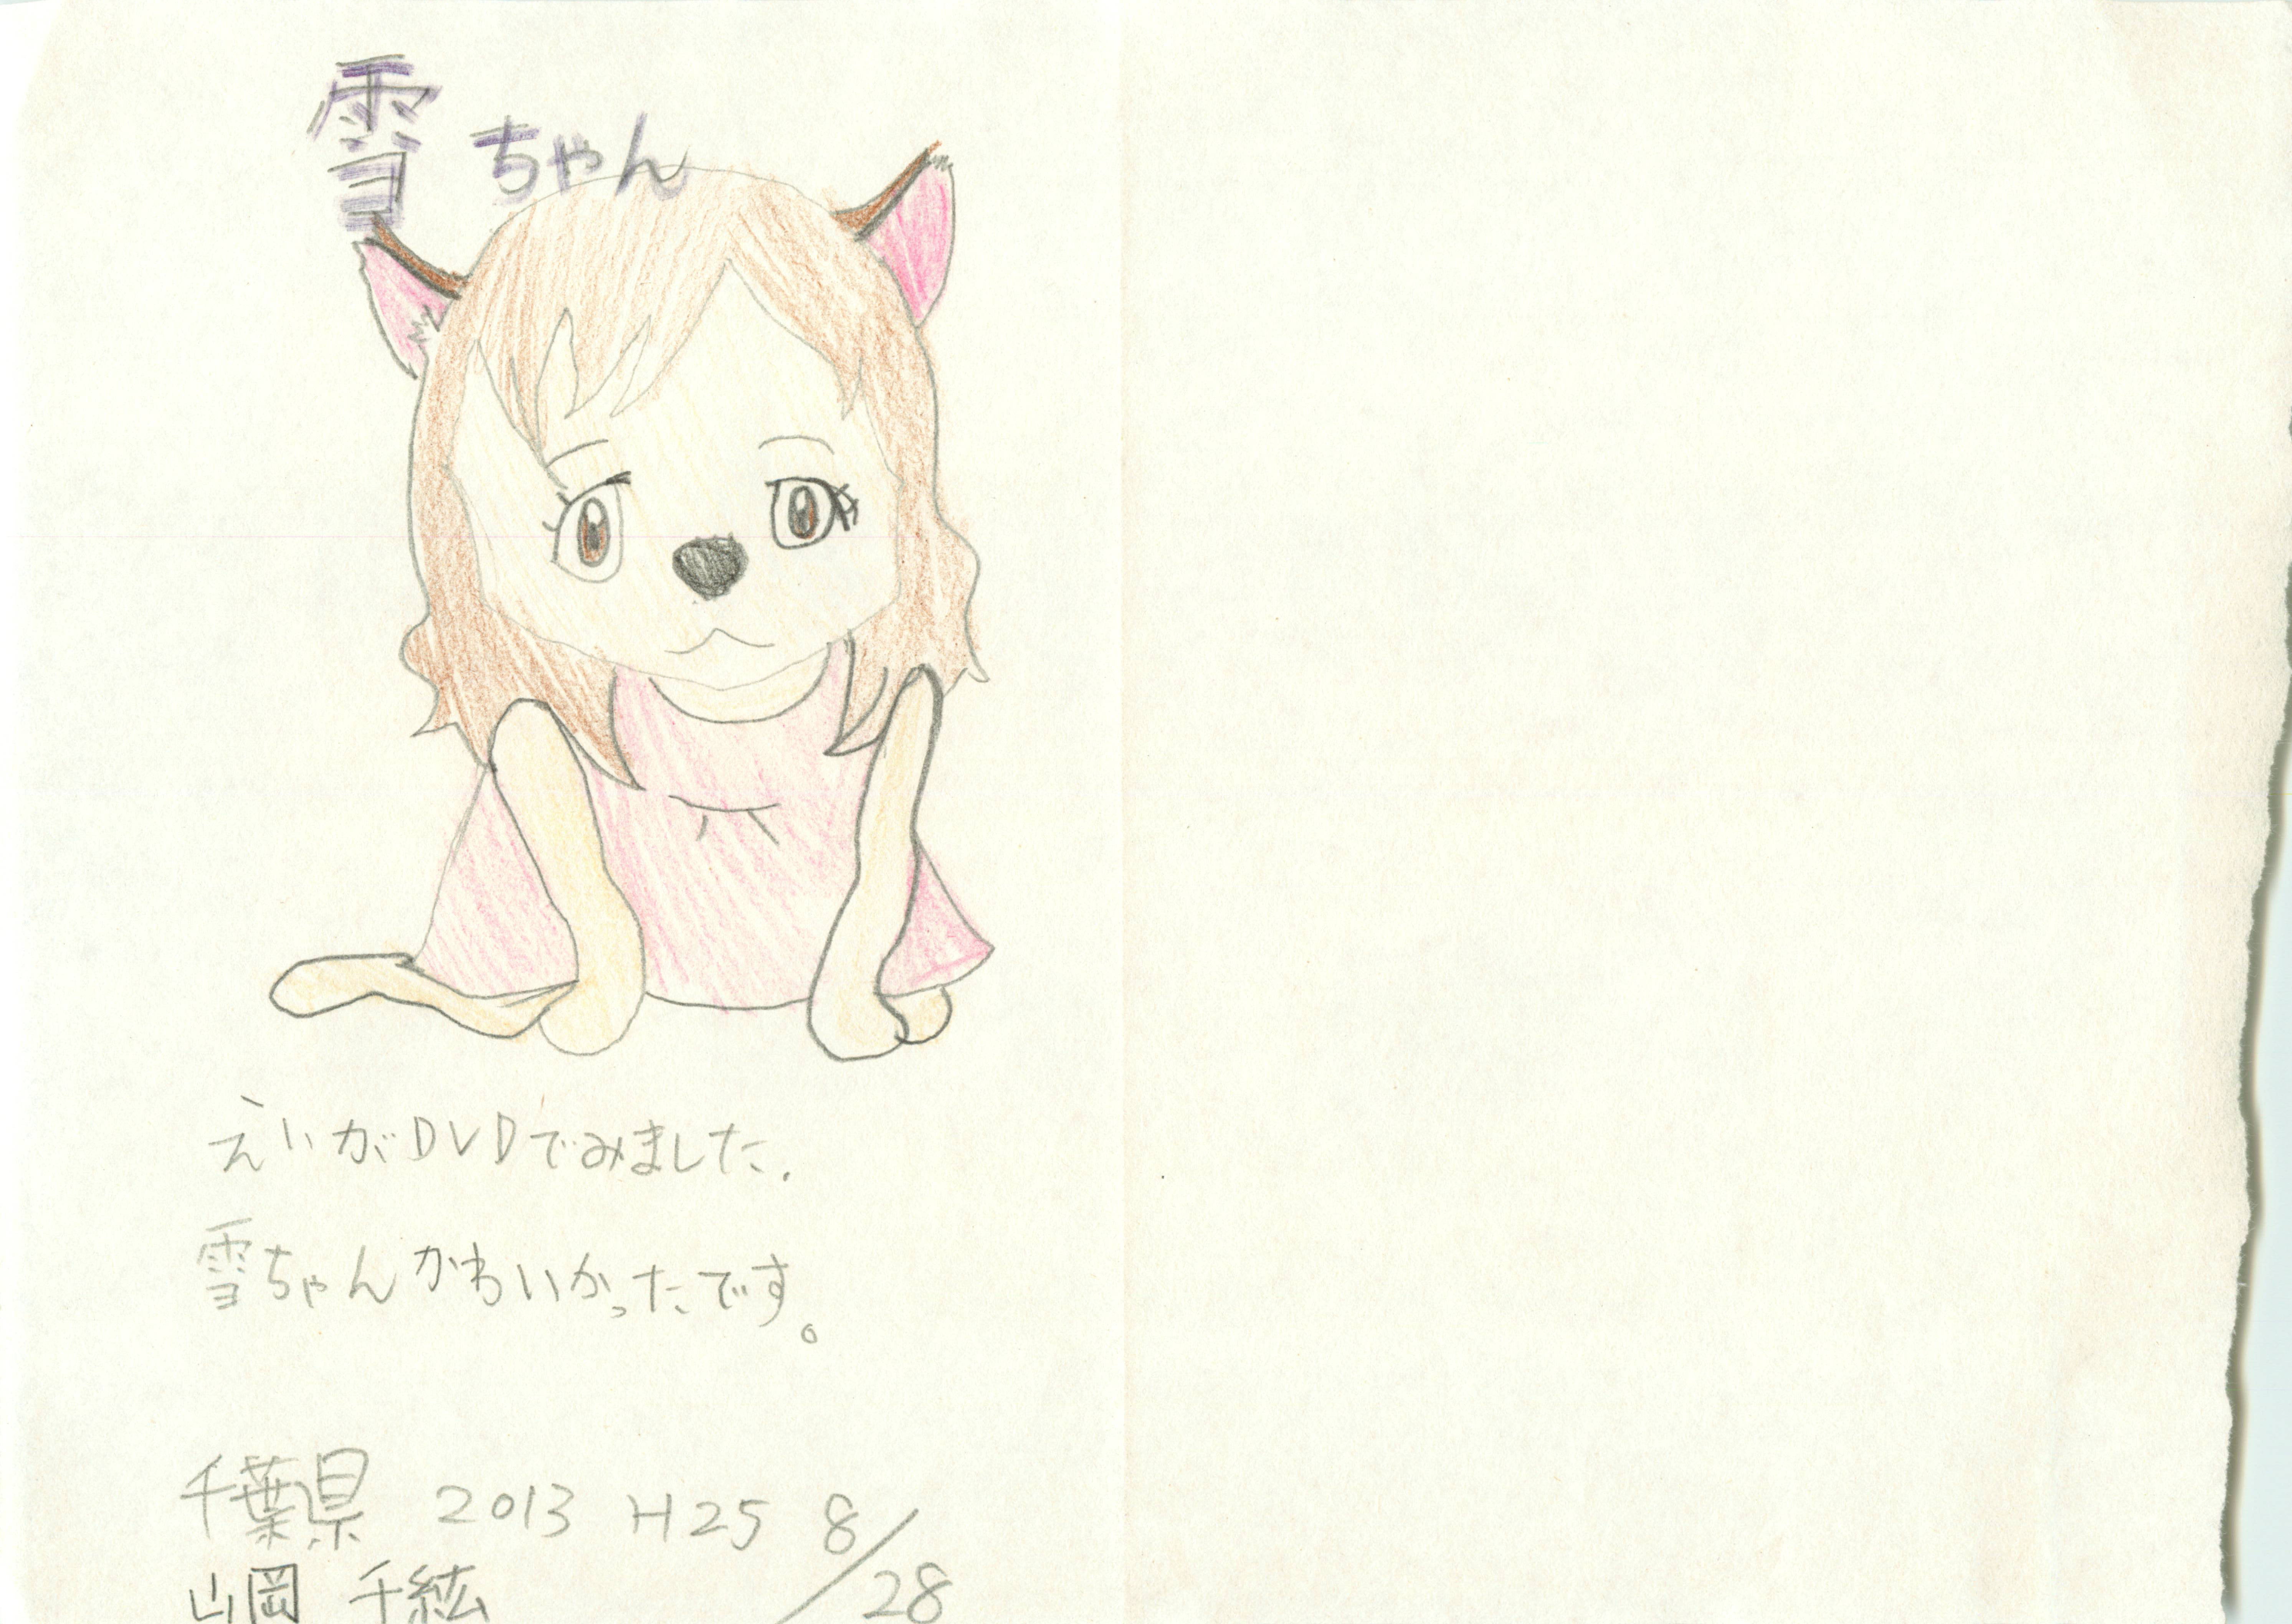 雪ちゃん
えいがDVDでみました.
雪ちゃんかわいかったです。
千葉県 2013 H25 8/28
山岡 千紘